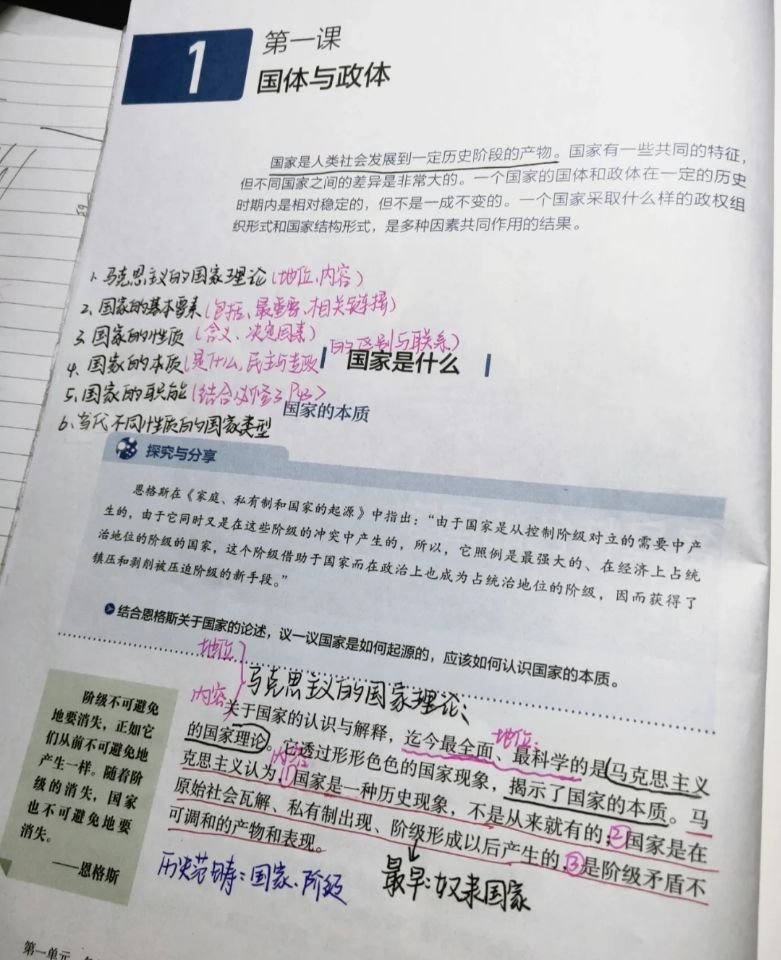 1
第一课
国体与政体
国家是人类社会发展到一定历史阶段的产物。国家有一些共同的特征，
但不同国家之间的差异是非常大的。一个国家的国体和政体在一定的历史
时期内是相对稳定的，但不是一成不变的。一个国家采取什么样的政权组
织形式和国家结构形式，是多种因素共同作用的结果。
1、马克思主义的国家理论(地位、内容)
2、国家的基本要素(包括、最重要、相关链接)
3、国家的性质(含义、决定因素)
4、国家的本质(是什么,民主与专政的区别与联系)
国家是什么
5、国家的职能(结合必修3 P43)
国家的本质
6、当代不同性质的国家类型
探究与分享
恩格斯在《家庭、私有制和国家的起源》中指出：“由于国家是从控制阶级对立的需要中产
生的，由于它同时又是在这些阶级的冲突中产生的，所以，它照例是最强大的、在经济上占统
治地位的阶级的国家，这个阶级借助于国家而在政治上也成为占统治地位的阶级，因而获得了
镇压和剥削被压迫阶级的新手段。”
结合恩格斯关于国家的论述，议一议国家是如何起源的，应该如何认识国家的本质。
地位
内容
马克思主义的国家理论：
阶级不可避免
地要消失，正如它
们从前不可避免地
产生一样。随着阶
级的消失，国家
也不可避免地要
消失。
——恩格斯
地位：
关于国家的认识与解释，迄今最全面、最科学的是马克思主义
的国家理论。它透过形形色色的国家现象，揭示了国家的本质。马
内容
克思主义认为，①国家是一种历史现象，不是从来就有的；②国家是在
原始社会瓦解、私有制出现、阶级形成以后产生的，③是阶级矛盾不
可调和的产物和表现。
历史范畴：国家、阶级
最早：奴隶国家
第一单元